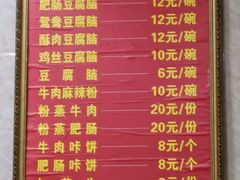 肥肠豆腐脑 12元/碗
鸳鸯豆腐脑 12元/碗
酥肉豆腐脑 12元/碗
鸡丝豆腐脑 10元/碗
豆腐脑 6元/碗
牛肉麻辣粉 10元/碗
粉蒸牛肉 20元/份
粉蒸肥肠 20元/份
牛肉咔饼 8元/个
肥肠咔饼 8元/个